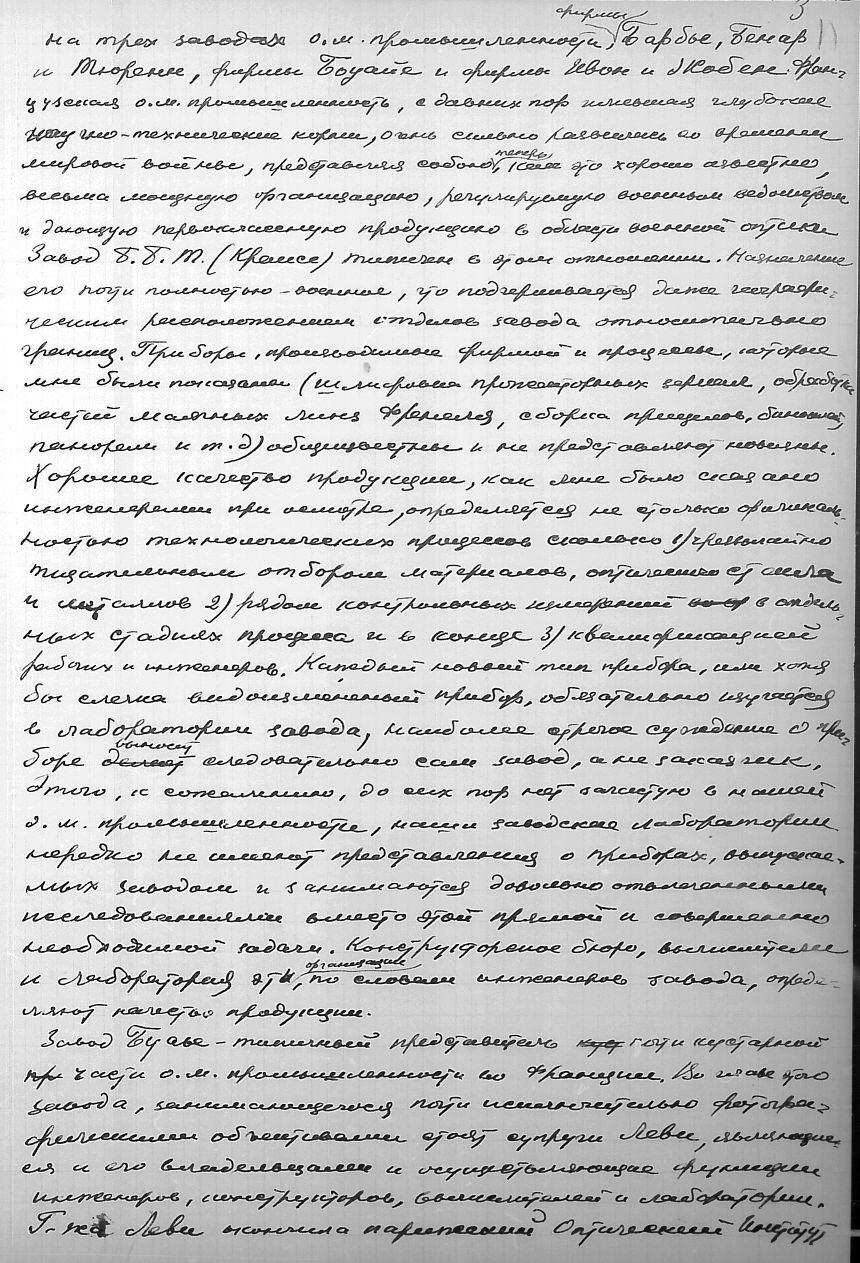 3
11
на трех заводах о.м. промышленности, фирмы Барбье, Бенар
и Тюренн, фирмы Буайе и фирмы Ивон и Жобен. Фран-
цузская о.м. промышленность, с давних пор имевшая глубокие
научно-технические корни, очень сильно развилась во времени
мировой войны, представляя собою, теперь это хорошо известно,
весьма мощную организацию, регулируемую военным ведомством
и дающую первоклассную продукцию в области военной оптики
Завод Б.Б.Т. (Краусс) типичен в этом отношении. Назначение
его почти полностью - военное, что подчеркивается даже географи-
ческим расположением отделов завода относительно
границ. Приборы, производимые фирмой и процессы, которые
мне были показаны (шлифовка прожекторных зеркал, обработка
частей маячных линз Френеля, сборка прицелов, биноклей,
панорам и т.д) общеизвестны и не представляют новизны.
Хорошее качество продукции, как мне было сказано
инженерами при осмотре, определяется не столько оригиналь-
ностью технологических процессов сколько 1) чрезвычайно
тщательным отбором материалов, оптического стекла
и металлов 2) рядом контрольных измерений в отдель-
ных стадиях процесса и в конце 3) квалификацией
рабочих и инженеров. Каждый новый тип прибора, или хотя
бы слегка видоизмененный прибор, обязательно изучается
в лаборатории завода, наиболее строгое суждение о при-
боре выносит следовательно сам завод, а не заказчик,
Этого, к сожалению, до сих пор нет зачастую в нашей
о.м. промышленности, наши заводские лаборатории
нередко не имеют представления о приборах, выпускае-
мых заводом и занимаются довольно отвлеченными
исследованиями вместо этой прямой и совершенно
необходимой задачи. Конструкторское бюро, вычислители
и лаборатория, эти организации, по словам инженеров завода, опреде-
ляют качество продукции.
Завод Буайе - типичный представитель почти кустарной
части о.м. промышленности во Франции. Во главе этого
завода, занимающегося почти исключительно фотогра-
фическими объективами стоят супруги Леви, являющие-
ся и его владельцами и осуществляющие функции
инженеров, конструкторов, вычислителей и лаборатории.
Г-жа Леви окончила парижский Оптический Институт